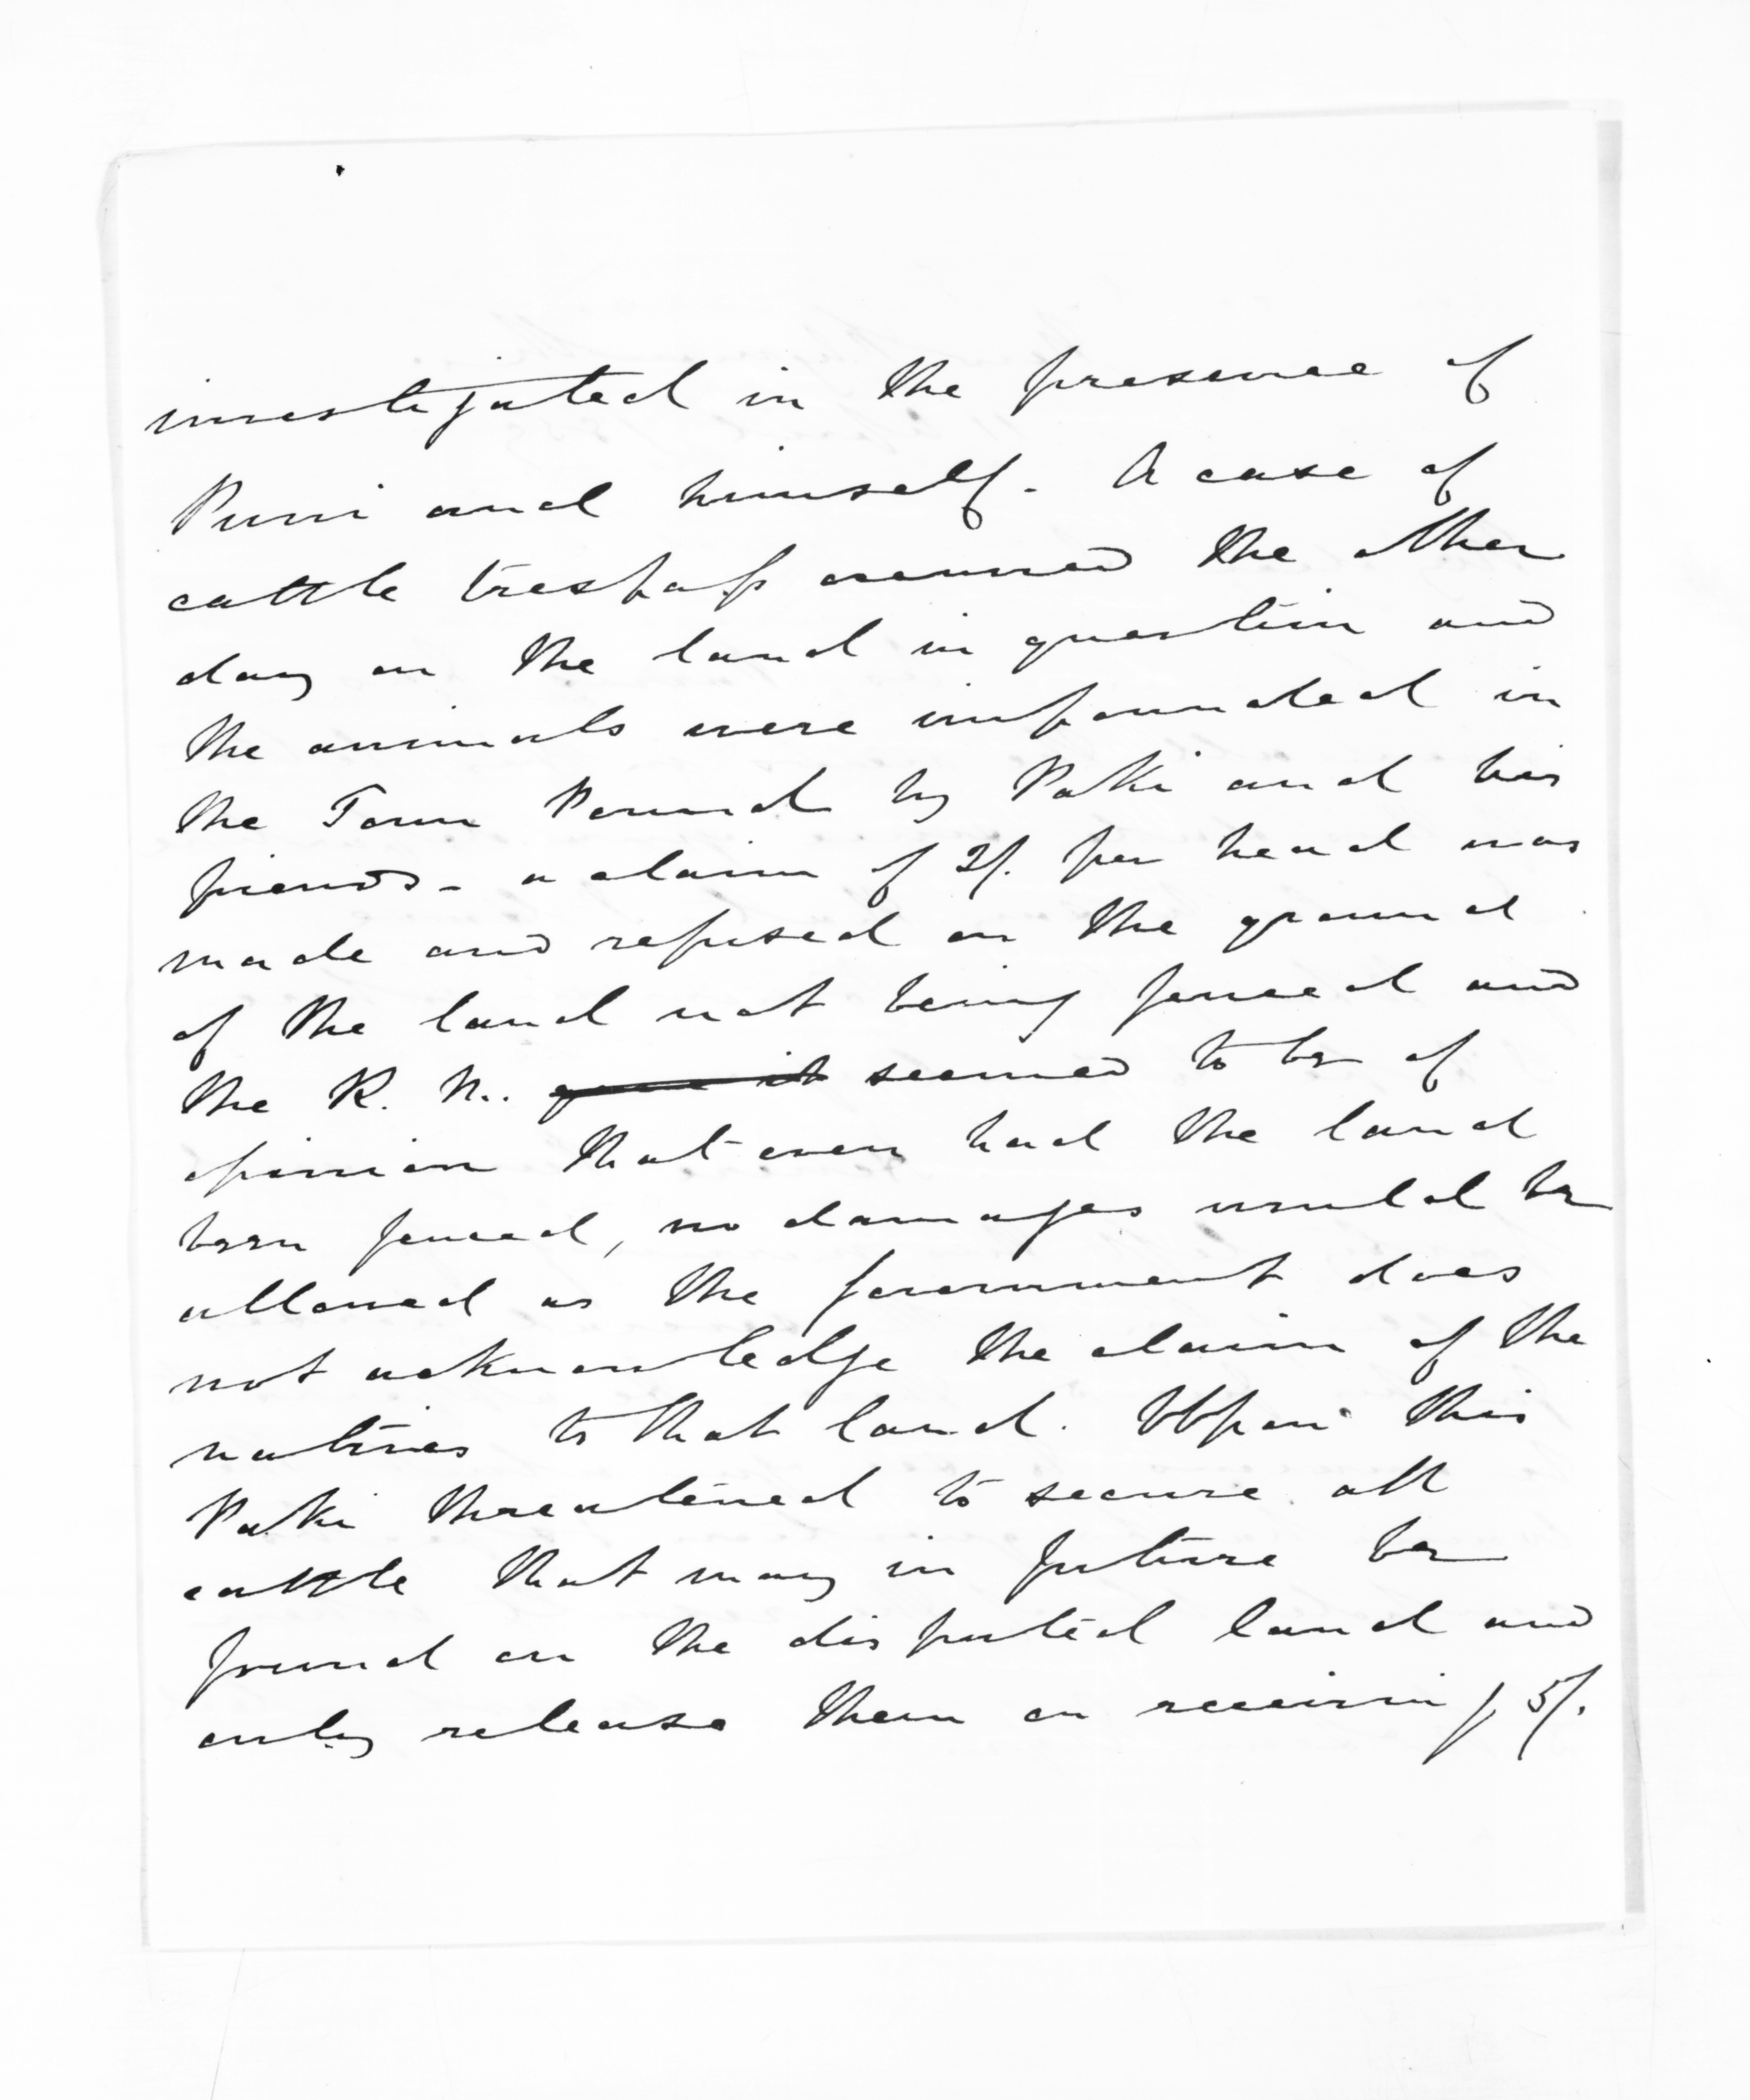 investigated in the presence of
Puni and himself. A case of
cattle trespass occurred the other
day on the land in question and
the animals were impounded in
the Town Pound by Poki and his
friends - a claim of 2/. per head was
made and refused on the ground
of the land not being fenced and
the R. M. gave it seemed to be of
opinion that even had the land
been fenced, no damages would be
allowed as the Government does
not acknowledge the claim of the
natives to that land. Upon this
Poki threatened to secure all
cattle that may in future be
found on the disputed land and
only release them on receiving 5/.